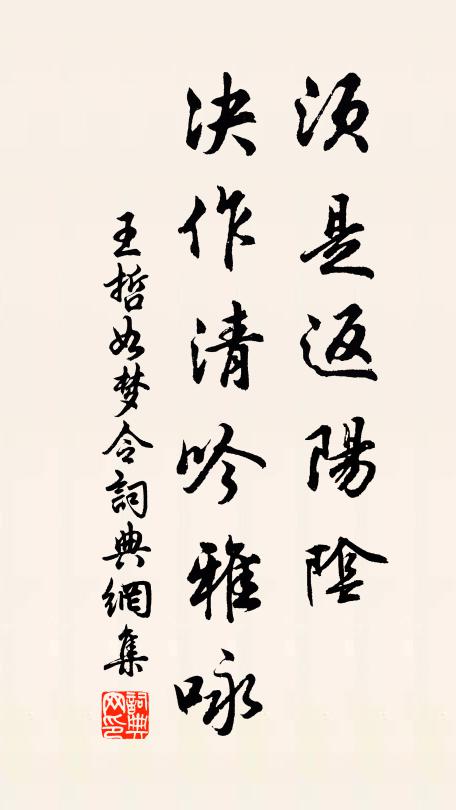 須是返陽陰
決作清吟雅咏
王哲如梦令詞典網集
詞典网印